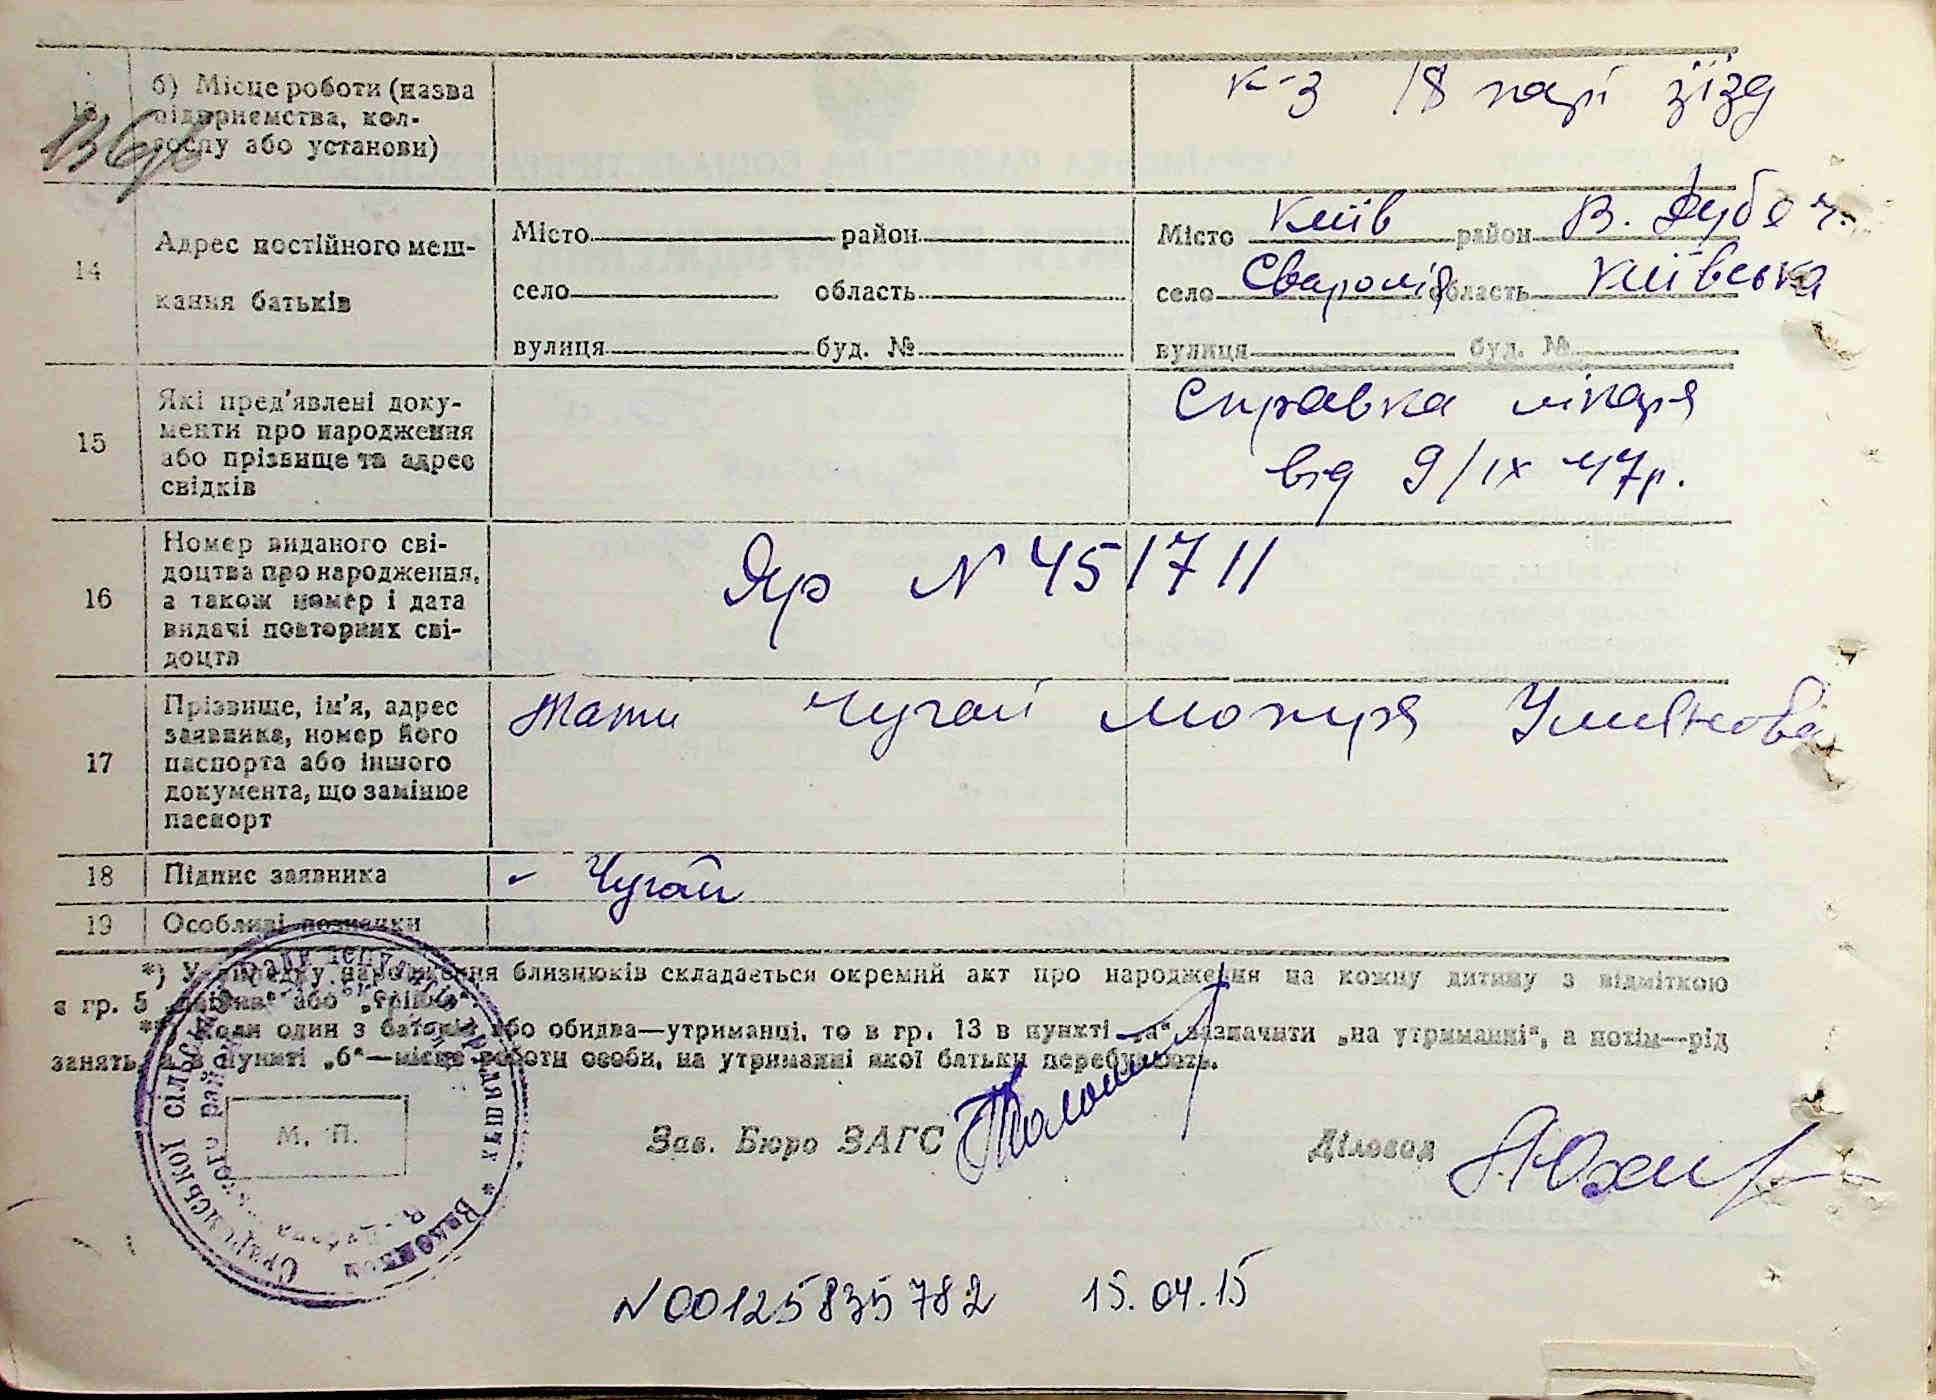 13
б) Місце роботи (назва
підприємства, кол-
госпу або установи)
к-з 18 парт з'їзд
14
Адрес постійного меш-
кання батьків
Місто район
село область
вулиця буд. №
Місто Київ район В. Дубеч.
село Сваромія область Київська
вулиця буд. №
15
Які пред'явлені доку-
менти про народження
або прізвище та адрес
свідків
Справка лікаря
від 9/IX 47р.
16
Номер виданого сві-
доцтва про народження,
а також номер і дата
видачі повторних сві-
доцтв
Яр N 451711
17
Прізвище, ім'я, адрес
заявника, номер його
паспорта або іншого
документа, що замінює
паспорт
Мати Чугай Мотря Умянова
18
Підпис заявника
Чугай
19
Особливі позначки
*) У випадку народження близнюків складається окремий акт про народження на кожну дитину з відміткою
в гр. 5 „двійня“ або „трійня“.
**) Коли один з батьків або обидва—утриманці, то в гр. 13 в пункті „а“ зазначити „на утриманні“, а потім—рід
занять, а в пункті „б“—місце роботи особи, на утриманні якої батьки перебувають.
М. П.
Зав. Бюро ЗАГС
Діловод
N00125835782 15.04.15